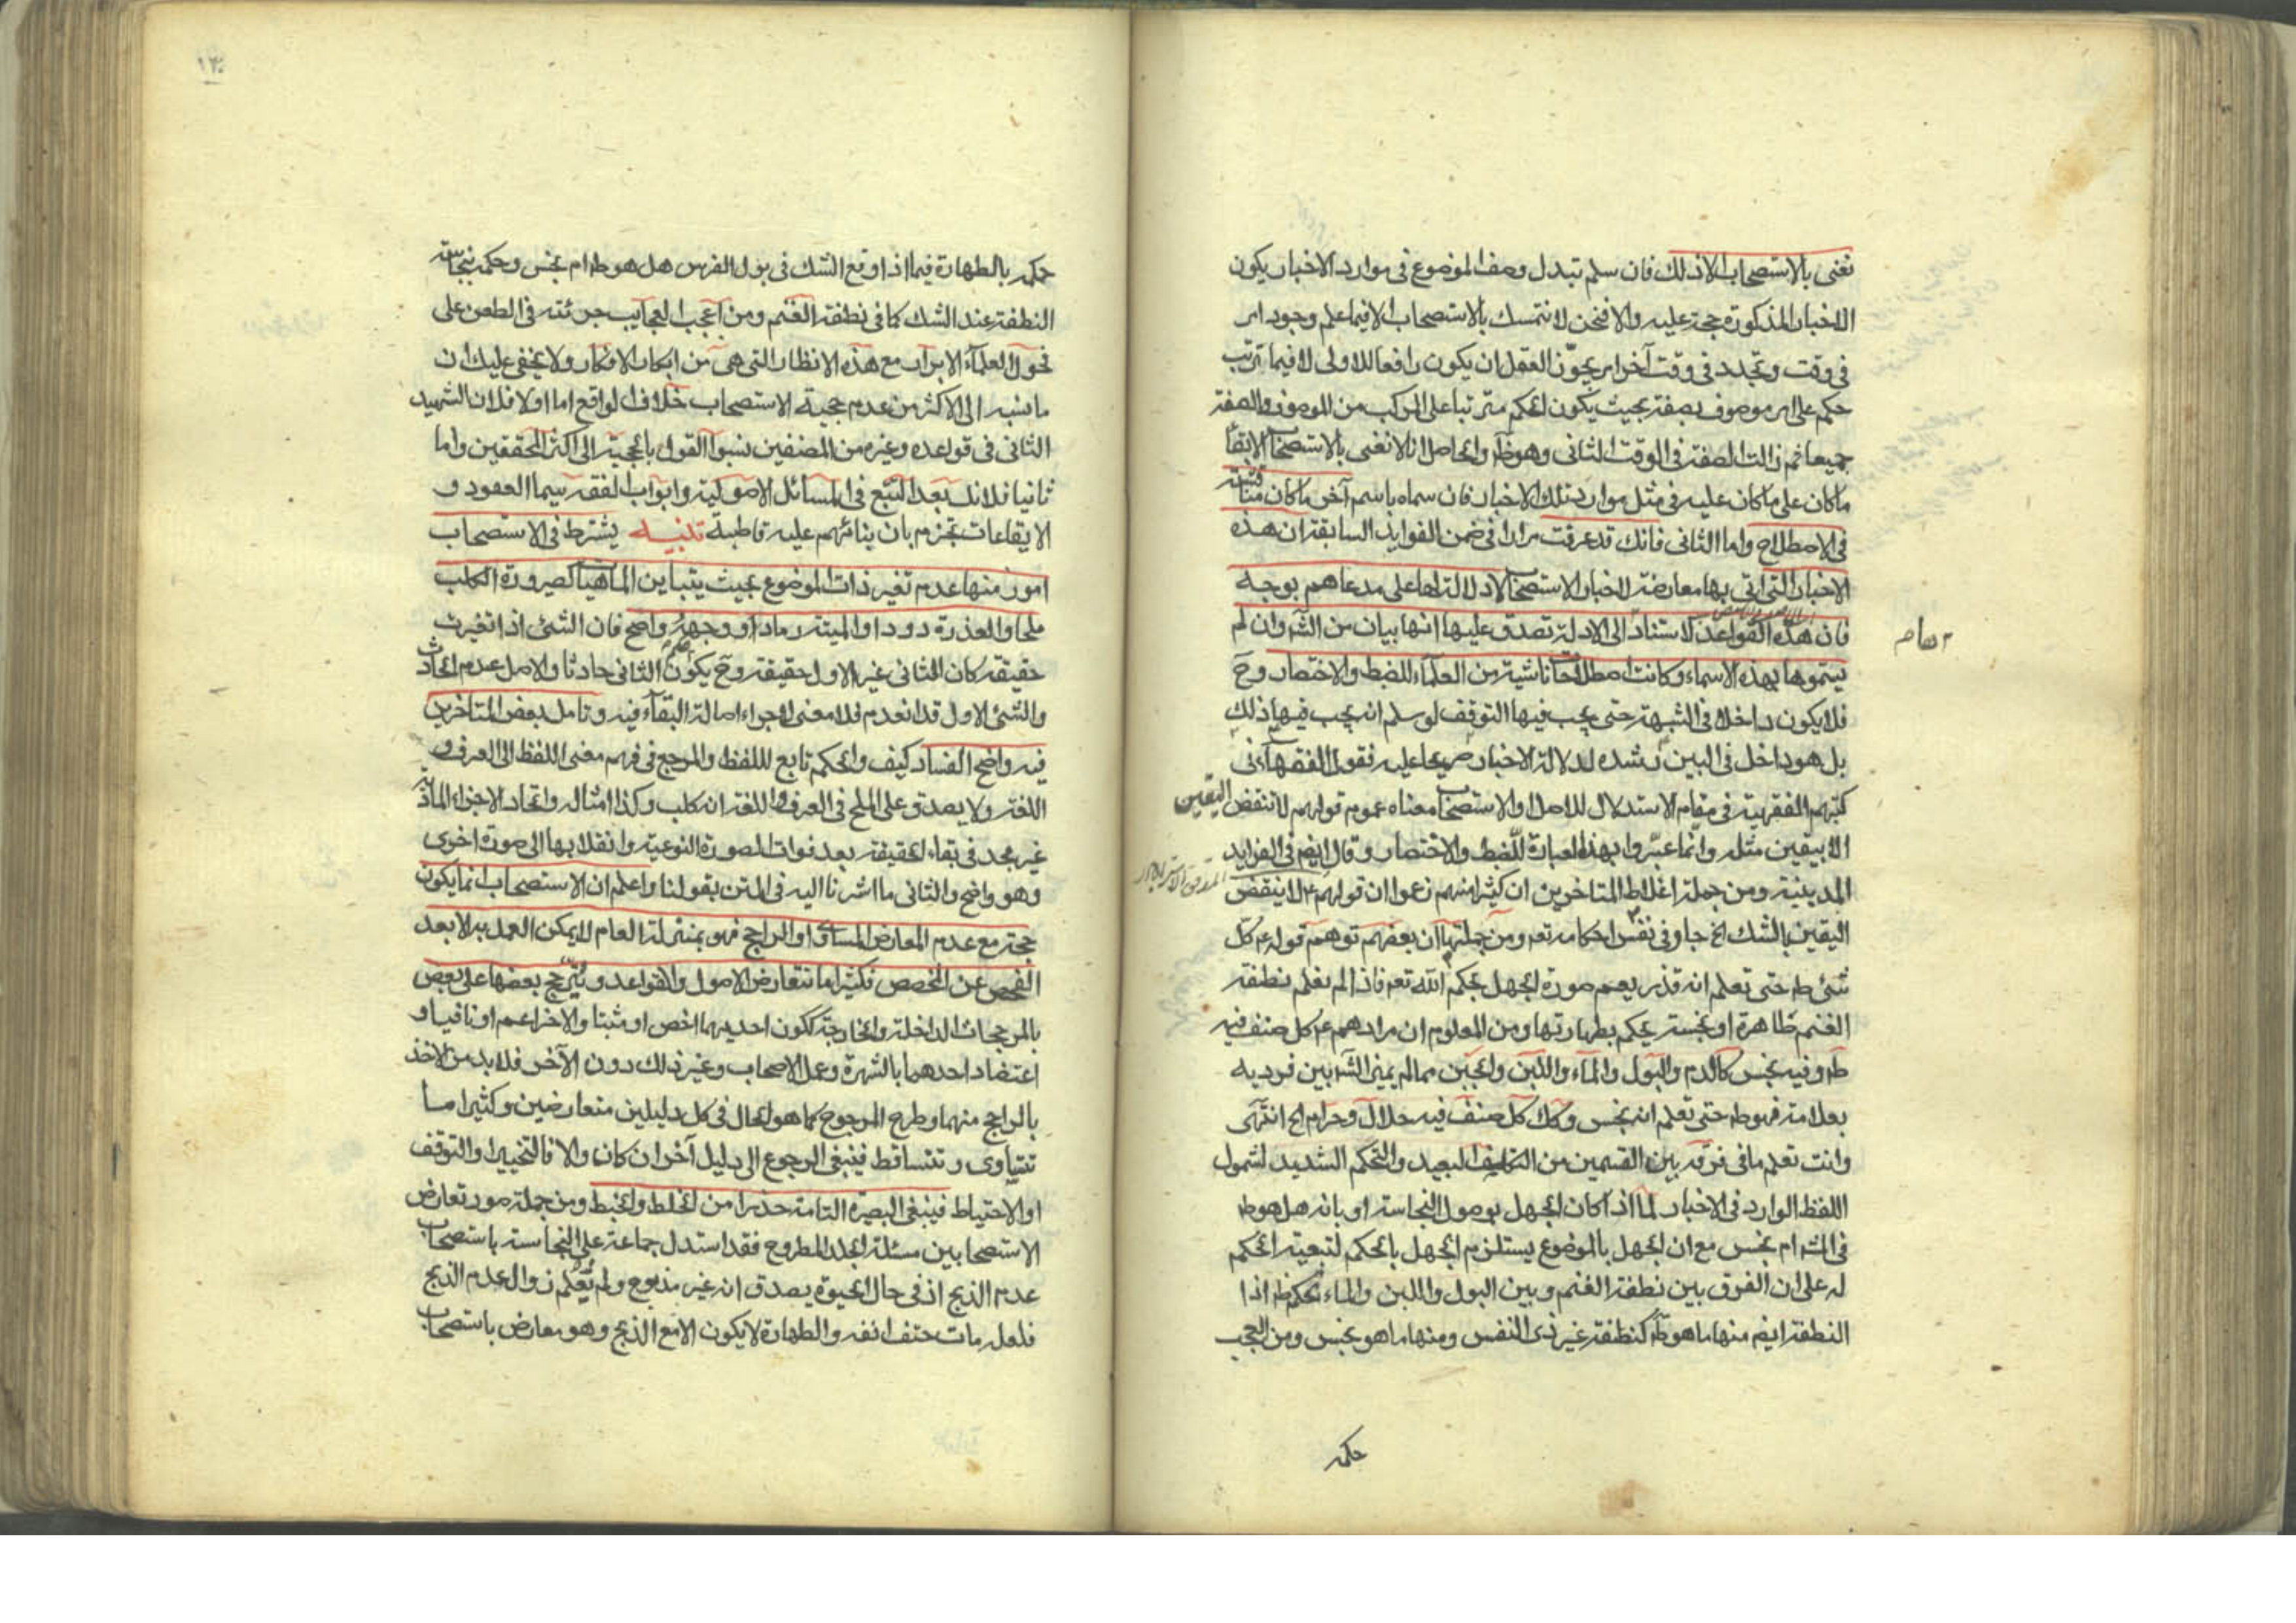 نعنى بالاستصحاب الا ذلك فان سلم تبدل وصف الموضوع فى موارد الاخبار يكون
الاخبار المذكورة حجة عليه والا فنحن لا نتمسك بالاستصحاب الا فيما علم وجود امر
فى وقت وتجدد فى وقت آخر امر يجوّز العقل ان يكون رافعا للاولى لا فيما ترتب
حكم على امر موصوف بصفة بحيث يكون الحكم مترتبا على المركب من الموصوف والصفة
جميعا ثم زالت الصفة فى الوقت الثانى وهو ظ والحاصل انا لا نعنى بالاستصحاب الا بقاء
ما كان على ما كان عليه فى مثل موارد تلك الاخبار فان سماه باسم آخر ما كان مناقشة
فى الاصطلاح واما الثانى فانك قد عرفت مرارا فى ضمن الفوايد السابقة ان هذه
الاخبار التى اتى بها معارضة لاخبار الاستصحاب لا دلالة لها على مدعاهم بوجه
فان هذه القواعد لاستناد الى الادلة تصدق عليها انها بيان من الش وان لم
يسموها بهذه الاسماء وكانت اصطلاحا ناشية من العلماء للضبط والاختصار وح
فلا يكون داخلا فى الشبهة حتى يجب فيها التوقف لو سلم انه يجب فيها ذلك
بل هو داخل فى البين رشده لدلالة الاخبار صريحا عليه فقول الفقهاء فى
كتبهم الفقهية فى مقام الاستدلال للاصل او الاستصحاب معناه عموم قولهم لا تنقض اليقين
الا بيقين مثله وانما عبّروا بهذه العبارة للضبط والاختصار وقال ايضم فى الفوايد
المدينية ومن جملة اغلاط المتاخرين ان كثيرا منهم زعموا ان قولهم ع لا ينقض
اليقين بالشك الخ جار فى نفس احكامه تعم ومن جملتها ان بعضهم توهم قوله ع كل
شئ ط حتى تعلم انه قذر يعم صورة الجهل بحكم الله تعم فاذا لم نعلم نطفة
الغنم طاهرة او نجسة يحكم بطهارتها ومن المعلوم ان مرادهم ع كل صنف فيه
ط وفيه نجس كالدم والبول والماء واللبن والجبن مما لم يميز الش بين فرديه
بعلامة فهو ط حتى تعلم انه نجس وكك كل صنف فيه حلال وحرام الخ انتهى
وانت تعلم ما فى فرقه بين القسمين من التكلف البعيد والتحكم الشديد لشمول
اللفظ الوارد فى الاخبار لما اذا كان الجهل بوصول النجاسة او بانه هل هو ط
فى الش ام نجس مع ان الجهل بالموضوع يستلزم الجهل بالحكم لتبعية الحكم
له على ان الفرق بين نطفة الغنم وبين البول واللبن والماء تحكم ظ اذا
النطفة ايضم منها ما هو ط كنطفة غير ذى النفس ومنها ما هو نجس ومن العجب
حكمه
حكمه بالطهارة فيما اذا وقع الشك فى بول الفرس هل هو ط ام نجس وحكمه بنجاسة
النطفة عند الشك كما فى نطفة الغنم ومن اعجب العجايب جرئته فى الطعن على
فحول العلماء الابرار مع هذه الانظار التى هى من ابكار الافكار ولا يخفى عليك ان
ما نسبه الى الاكثر من عدم حجية الاستصحاب خلاف الواقع اما اولا فلان الشهيد
الثانى فى قواعده وغيره من المصنفين نسبوا القول بالحجية الى اكثر المحققين واما
ثانيا فلانك بعد التتبع فى المسائل الاصولية وابواب الفقه سيما العقود و
الايقاعات تجزم بان بنائهم عليه قاطبة تنبيه يشترط فى الاستصحاب
امور منها عدم تغير ذات الموضوع بحيث يتباين الماهيات كصيرورة الكلب
ملحا والعذرة دودا والميتة رمادا ووجهه واضح فان الشئ اذا تغيرت
حقيقته كان الثانى غير الاول حقيقة وح يكون الثانى حادثا والاصل عدم الحادث
والشئ الاول قد انعدم فلا معنى لاجراء اصالة البقاء فيه وتامل بعض المتاخرين
فيه واضح الفساد كيف والحكم تابع لللفظ والمرجع فى فهم معنى اللفظ الى العرف و
اللغة ولا يصدق على الملح فى العرف واللغة انه كلب وكذا امثاله واتحاد الاجزاء المادية
غير مجد فى بقاء الحقيقة بعد فوات الصورة النوعية وانقلابها الى صورة اخرى
وهو واضح والثانى ما اشرنا اليه فى المتن بقولنا واعلم ان الاستصحاب انما يكون
حجة مع عدم المعارض المساوى او الراجح فهو بمنزلة العام لا يمكن العمل به الا بعد
الفحص عن المخصص فكثيرا ما تتعارض الاصول والقواعد ويترجح بعضها على بعض
بالمرجحات الداخلة والخارجة ككون احديهما اخص او مثبتا والاخر اعم او نافيا و
اعتضاد احدهما بالشهرة وعمل الاصحاب وغير ذلك دون الآخر فلا بد من الاخذ
بالراجح منهما وطرح المرجوح كما هو الحال فى كل دليلين متعارضين وكثيرا ما
تتساوى وتتساقط فينبغى الرجوع الى دليل آخر ان كان والا فالتخيير او التوقف
او الاحتياط فينبغى البصيرة التامة حذرا من الخلط والخبط ومن جملة صور تعارض
الاستصحابين مسئلة الجلد المطروح فقد استدل جماعة على النجاسة باستصحاب
عدم الذبح اذ فى حال الحيوة يصدق انه غير مذبوح ولم يعلم زوال عدم الذبح
فلعله مات حتف انفه والطهارة لا يكون الا مع الذبح وهو معارض باستصحاب